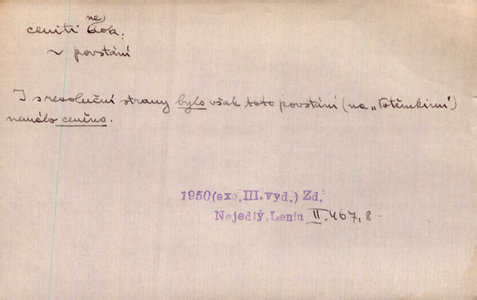 ceniti nedok.
~ povstání
I s revoluční strany bylo však toto povstání (na „Potěmkinu")
nemálo ceněno.
1950(exc.III.vyd.) Zd.
Nejedlý, Lenin II. 467, 8